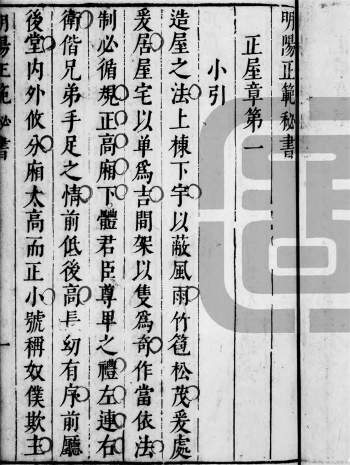 明陽正範秘書
正屋章第一
小引
造屋之法上棟下宇以蔽風雨竹苞松茂爰處
爰居屋宅以单為吉間架以隻為奇作當依法
制必循規正高廂下體君臣尊卑之禮左連右
衛偕兄弟手足之情前低後高長幼有序前廳
後堂内外攸分廂太高而正小號稱奴僕欺主
明陽正範秘書
一